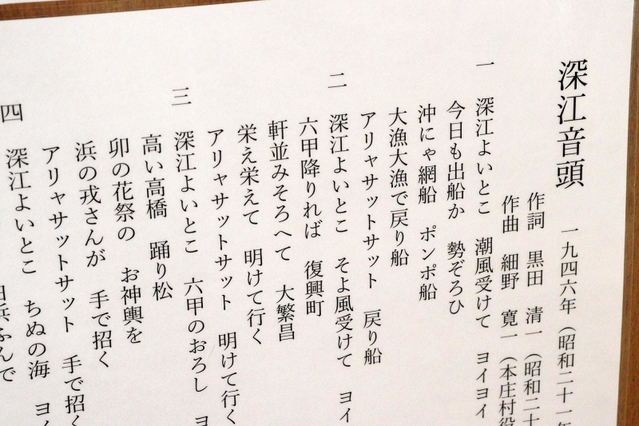 深江音頭
一九四六年（昭和二十一年
作詞 黒田 清一（昭和二十
作曲 細野 寛一（本庄村役
一 深江よいとこ 潮風受けて ヨイヨイ
今日も出船か 勢ぞろひ
沖にゃ網船 ポンポ船
大漁大漁で戻り船
アリャサットサット 戻り船
二 深江よいとこ そよ風受けて ヨイ
六甲降りれば 復興町
軒並みそろへて 大繁昌
栄え栄えて 明けて行く
アリャサットサット 明けて行く
三 深江よいとこ 六甲のおろし ヨ
高い高橋 踊り松
卯の花祭の お神輿を
浜の戎さんが 手で招く
アリャサットサット 手で招く
四 深江よいとこ ちぬの海 ヨイ
浜ふんで